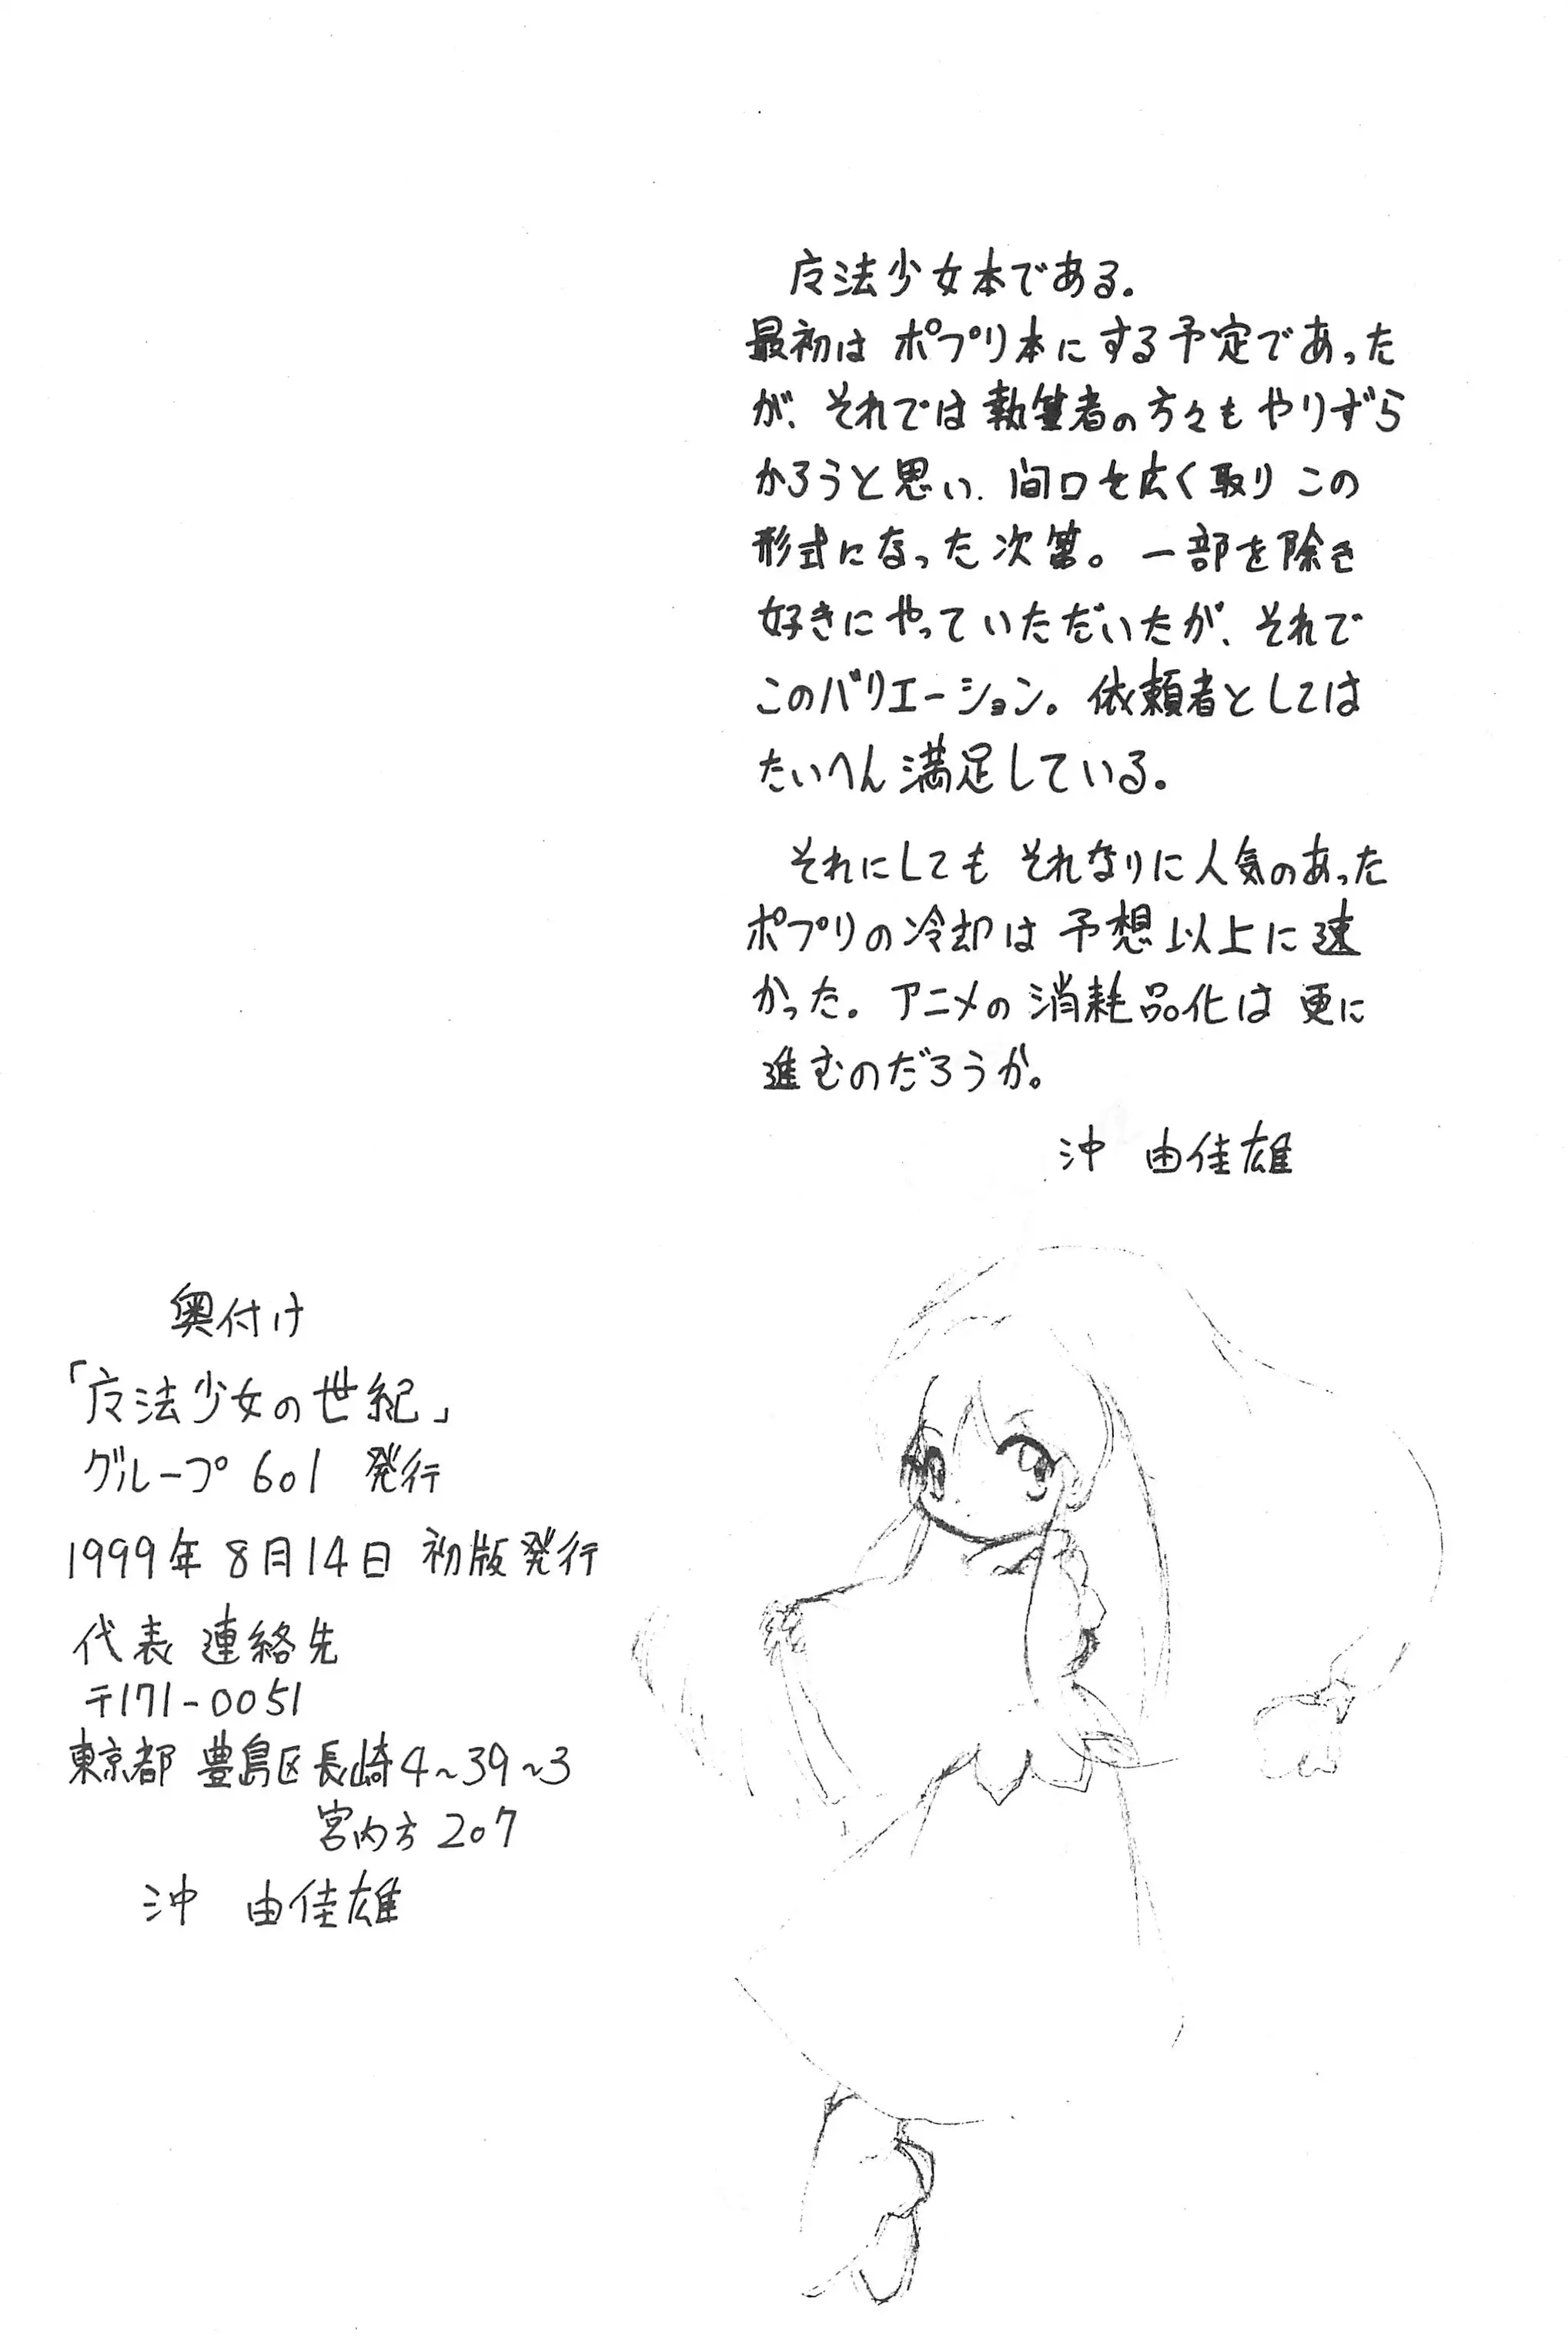 魔法少女本である。
最初は ポプリ本にする予定であった
が、それでは執筆者の方々もやりずら
かろうと思い、間口を広く取り この
形式になった次第。一部を除き
好きにやっていただいたが、それで
このバリエーション。依頼者としては
たいへん満足している。
それにしても それなりに人気のあった
ポプリの冷却は 予想以上に速
かった。アニメの消耗品化は 更に
進むのだろうか。
沖 由佳雄
奥付け
「魔法少女の世紀」
グループ601 発行
1999年8月14日 初版発行
代表 連絡先
〒171-0051
東京都 豊島区長崎4~39~3
宮内方207
沖 由佳雄